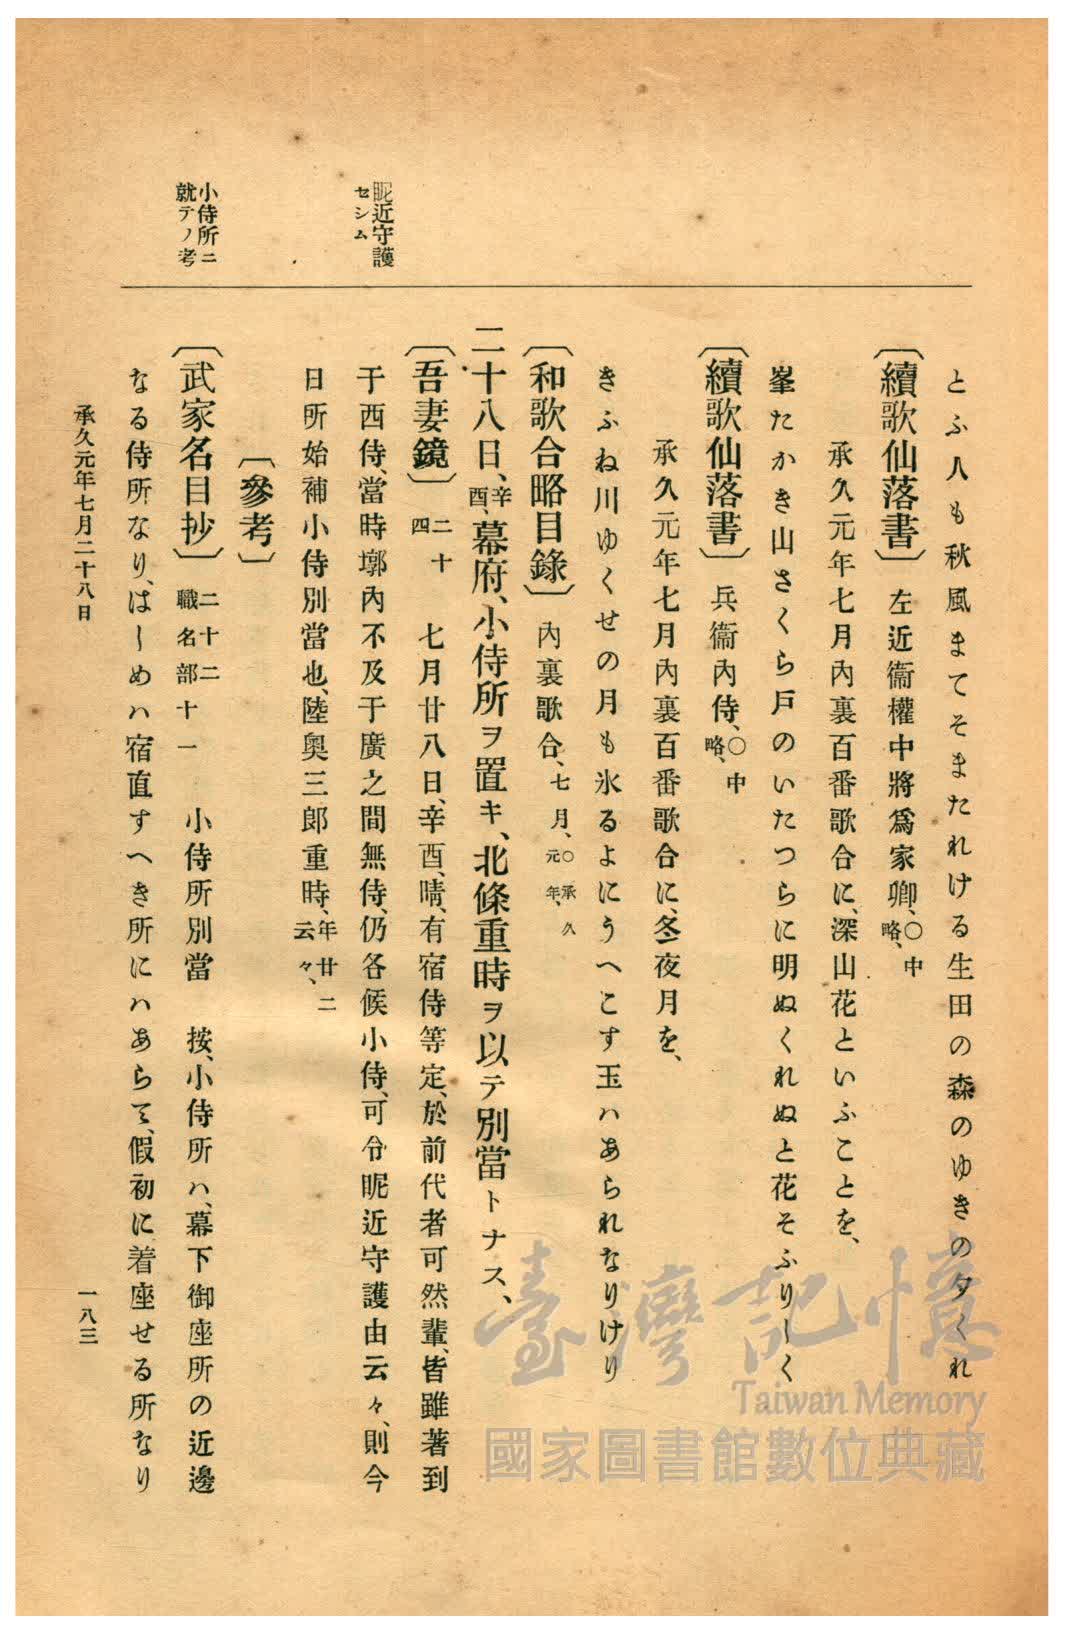 昵近守護
セシム
小侍所ニ
就テノ考
とふ人も秋風まてそまたれける生田の森のゆきの夕くれ
〔續歌仙落書〕 左近衞權中將爲家卿、〇中略、
承久元年七月內裏百番歌合に、深山花といふことを、
峯たかき山さくら戶のいたつらに明ぬくれぬと花そふりしく
〔續歌仙落書〕 兵衞內侍、〇中略、
承久元年七月內裏百番歌合に、冬夜月を、
きふね川ゆくせの月も氷るよにうへこす玉ハあられなりけり
〔和歌合略目錄〕 內裏歌合、七月、〇承久元年、
二十八日、辛酉、幕府、小侍所ヲ置キ、北條重時ヲ以テ別當トナス、
〔吾妻鏡〕 二十四 七月廿八日、辛酉、晴、有宿侍等定、於前代者可然輩、皆雖著到
于西侍、當時墎內不及于廣之間無侍、仍各候小侍、可令昵近守護由云々、則今
日所始補小侍別當也、陸奧三郎重時、年廿二云々、
〔參考〕
〔武家名目抄〕 二十二職名部十一 小侍所別當 按、小侍所ハ、幕下御座所の近邊
なる侍所なり、はしめハ宿直すへき所にハあらて、假初に着座せる所なり
承久元年七月二十八日
一八三
臺灣記憶
Taiwan Memory
國家圖書館數位典藏